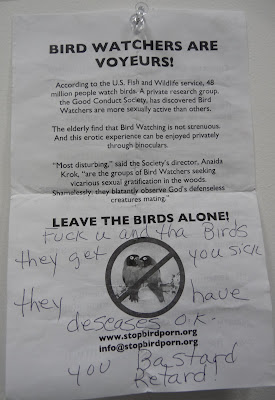 BIRD WATCHERS ARE
VOYEURS!
According to the U.S. Fish and Wildlife service, 48
million people watch birds. A private research group,
the Good Conduct Society, has discovered Bird
Watchers are more sexually active than others.
The elderly find that Bird Watching is not strenuous.
And this erotic experience can be enjoyed privately
through binoculars.
“Most disturbing,” said the Society's director, Anaida
Krok, “are the groups of Bird Watchers seeking
vicarious sexual gratification in the woods.
Shamelessly, they blatantly observe God's defenseless
creatures mating.”
LEAVE THE BIRDS ALONE!
Fuck u and tha Birds
they get you sick
they have
deseases O.K.
www.stopbirdporn.org
info@stopbirdporn.org
you Bastard
Retard!